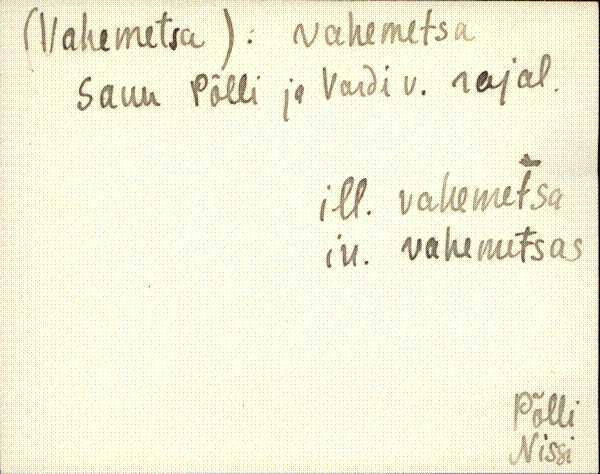 (Vahemetsa): vahemetsa
Saun Põlli ja Vardi v. rajal.
ill. vahemet̄sa
in. vahemet̄sas
Põlli
Nissi